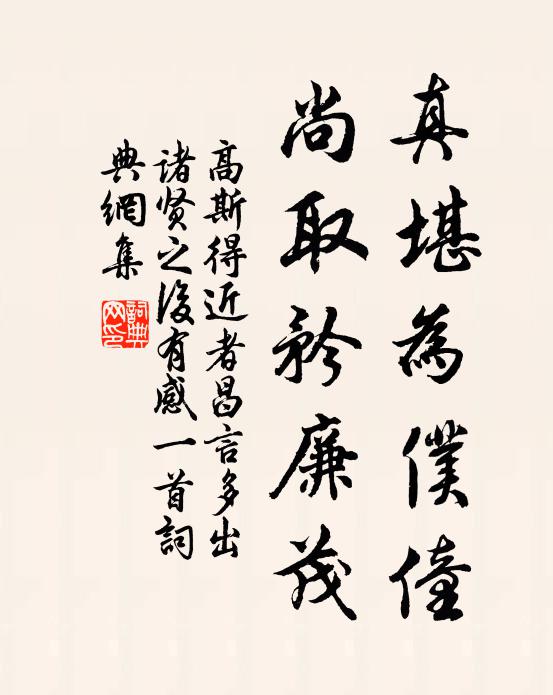 真堪為僕僮
尚取矜廉茂
高斯得近者昌言多出
諸贤之後有感一首詞
典網集
詞典网印